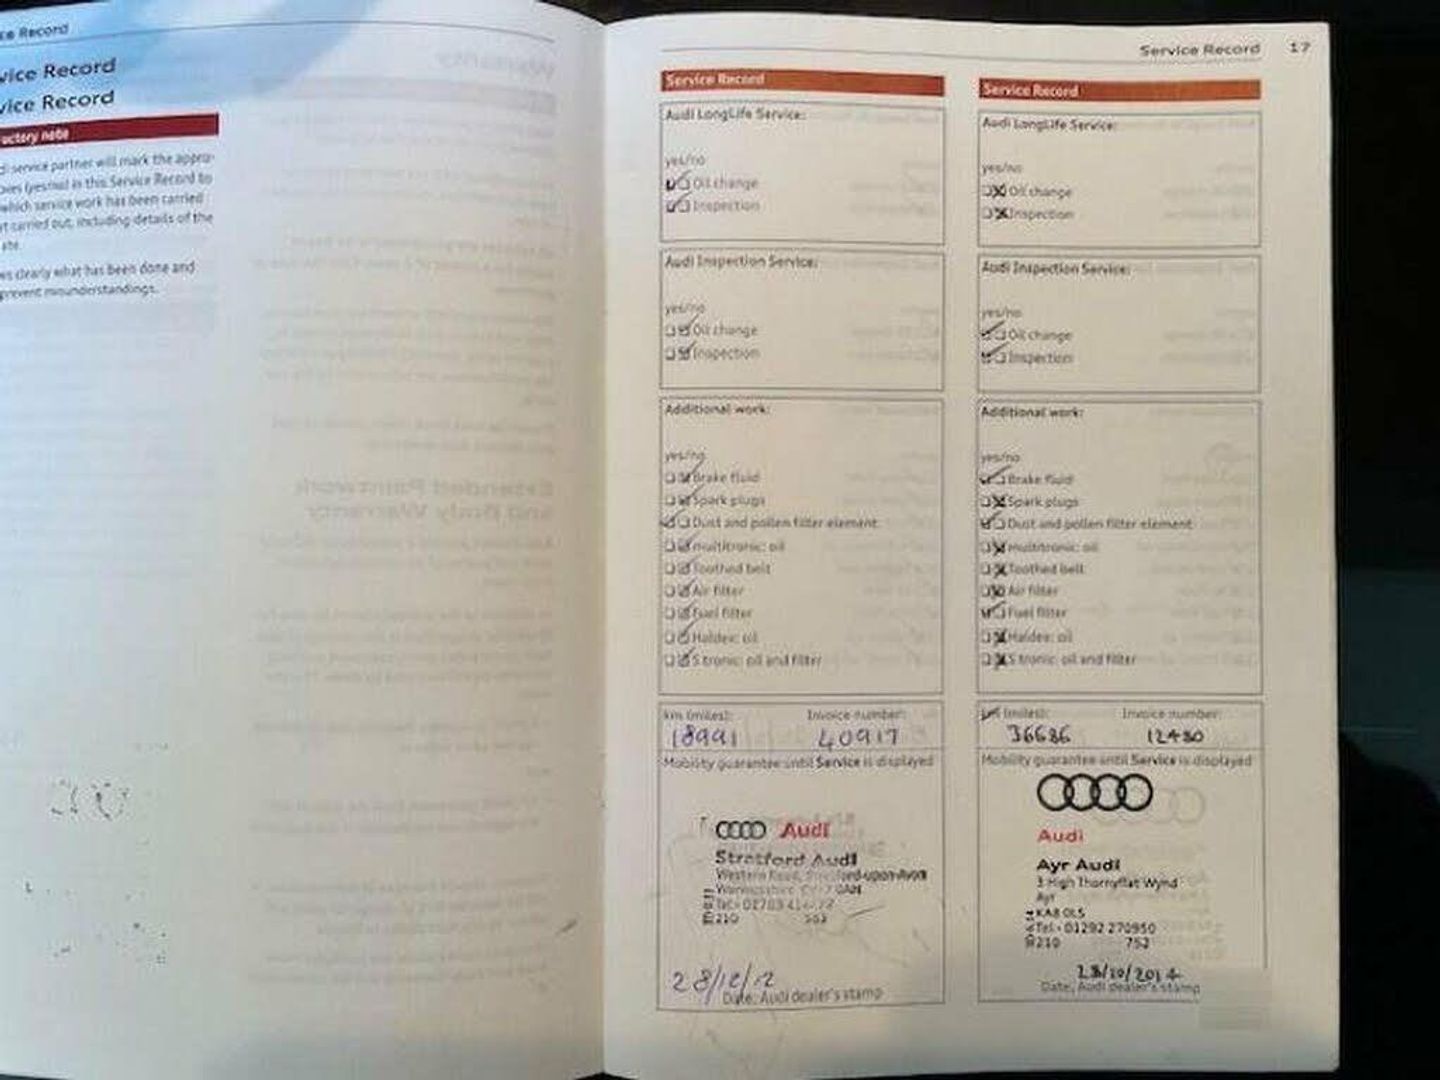 ce Record
vice Record
vice Record
actory note
di service partner will mark the appro-
oxes (yes/no) in this Service Record to
which service work has been carried
t carried out, including details of the
ate.
ws clearly what has been done and
prevent misunderstandings.
Service Record 17
Service Record
Audi LongLife Service:
yes/no
Oil change
Inspection
Audi Inspection Service:
yes/no
Oil change
Inspection
Additional work:
yes/no
Brake fluid
Spark plugs
Dust and pollen filter element
multitronic: oil
Toothed belt
Air filter
Fuel filter
Haldex: oil
S tronic: oil and filter
km (miles): Invoice number:
18991 40917
Mobility guarantee until Service is displayed
Audi
Stratford Audi
Western Road, Stratford-upon-Avon
Warwickshire
Tel:
210
28/12/12
Date, Audi dealer's stamp
Service Record
Audi LongLife Service:
yes/no
Oil change
Inspection
Audi Inspection Service:
yes/no
Oil change
Inspection
Additional work:
yes/no
Brake fluid
Spark plugs
Dust and pollen filter element
multitronic: oil
Toothed belt
Air filter
Fuel filter
Haldex: oil
S tronic: oil and filter
km (miles): Invoice number:
36686 12480
Mobility guarantee until Service is displayed
Audi
Ayr Audi
3 High Thornyflat Wynd
Ayr
KA8 0LS
Tel - 01292 270950
210 752
28/10/2014
Date, Audi dealer's stamp